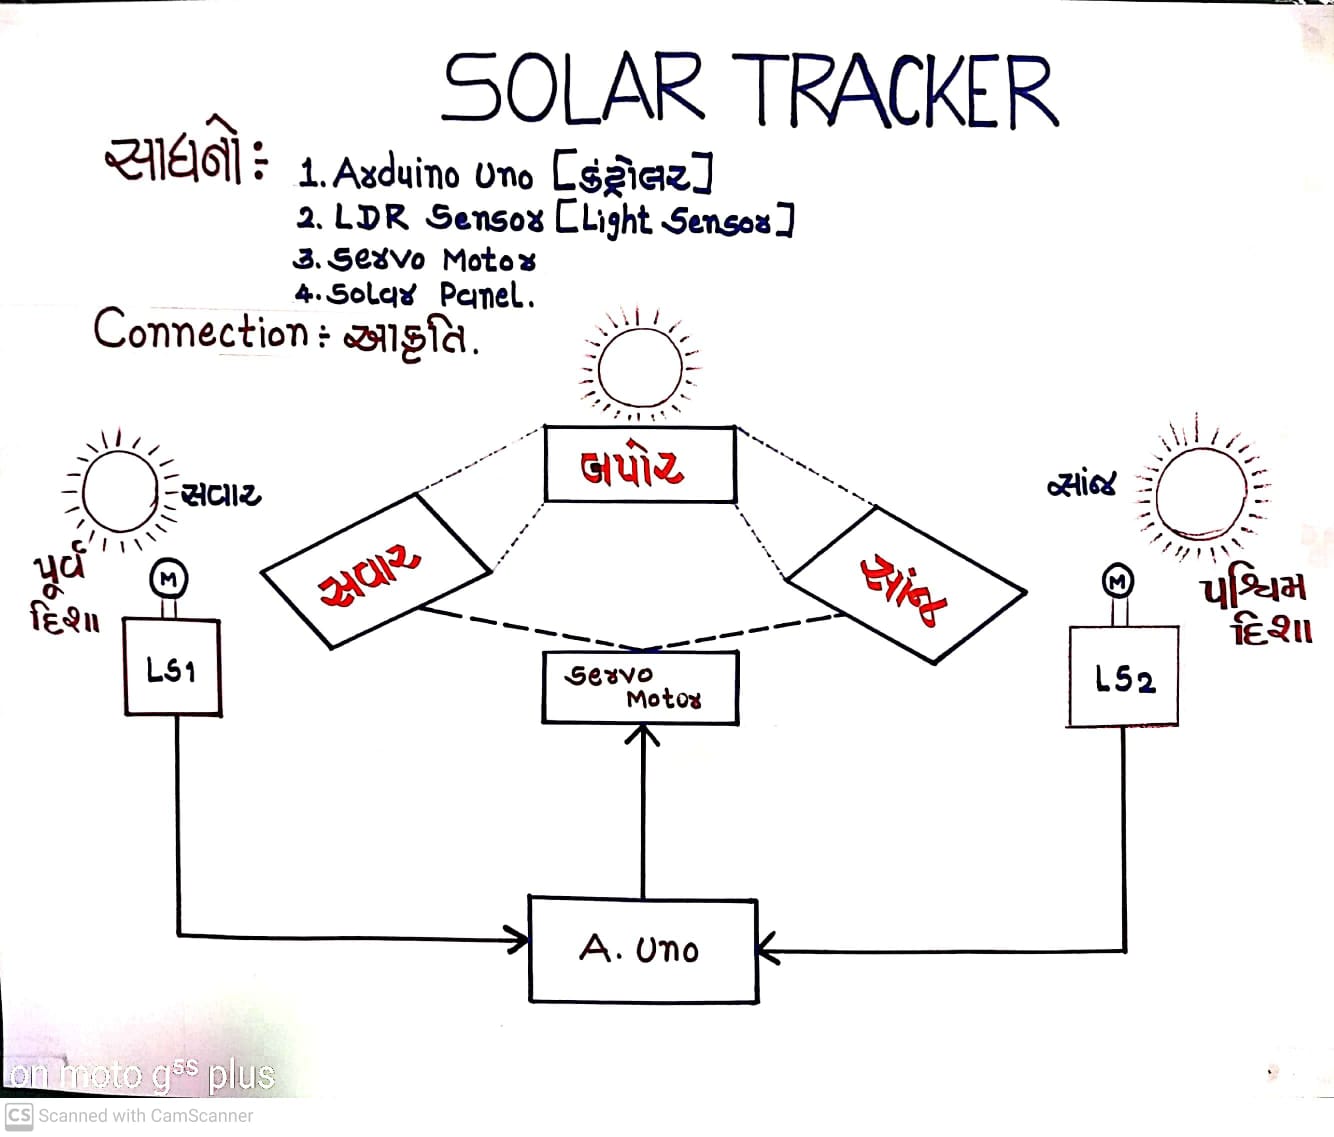 SOLAR TRACKER
સાધનો:
1. Arduino Uno [કંટ્રોલર]
2. LDR Sensor [Light Sensor]
3. Servo Motor
4. Solar Panel.
Connection: આકૃતિ.
બપોર
સવાર
સાંજ
પૂર્વ
દિશા
M
સવાર
સાંજ
M
પશ્ચિમ
દિશા
LS1
Servo
Motor
LS2
A. Uno
on moto g5S plus
CS Scanned with CamScanner